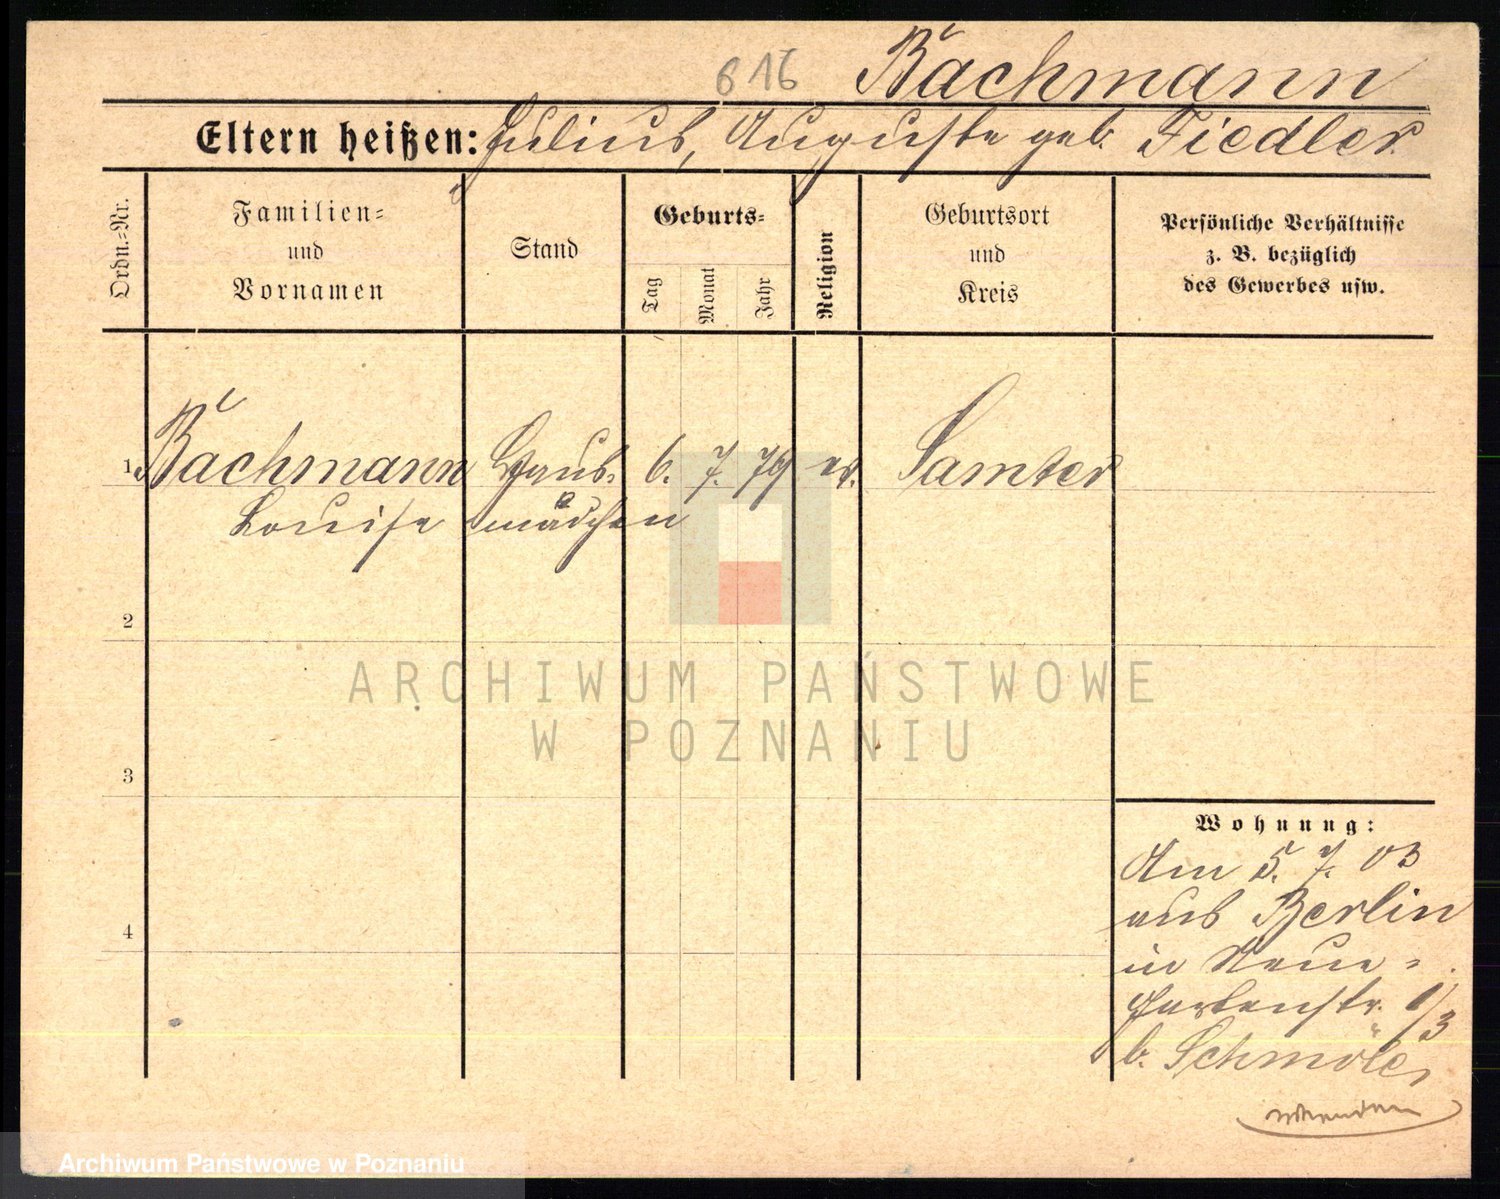 616 Bachmann
Eltern heißen: Julius, Auguste geb. Fiedler
Ordn.=Nr.
Familien=
und
Vornamen
Stand
Geburts=
Tag
Monat
Jahr
Religion
Geburtsort
und
Kreis
Persönliche Verhältnisse
z. B. bezüglich
des Gewerbes usw.
1 Bachmann Haus- 6. 7. 79 ev. Samter
Louise mädchen
2
3
4
ARCHIWUM PAŃSTWOWE
W POZNANIU
Wohnung:
Am 5. 7. 03
aus Berlin
in Neue-
Gartenstr. 1/3
b.
Archiwum Państwowe w Poznaniu